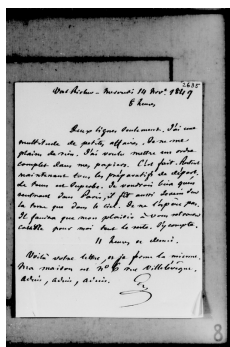 2635
Val Richer - Mercredi 14 Nov. 1849
6 heures
Deux lignes seulement. J'ai une
multitude de petites affaires. Je ne me
plains de rien. J'ai voulu mettre un ordre
complet dans mes papiers. C'est fait. Restent
maintenant tous les préparatifs de départ.
Le tems est superbe. Je voudrois bien que
dans Paris, il fît aussi beau sur
la terre que dans le Ciel. Je ne l'espère pas.
Il faudra que mon plaisir à vous retrouver
pour moi tout le reste. J'y compte.
11 heures et demie.
Voilà votre lettre, et je ferme la mienne.
Ma maison est N° rue Villévêque.
Adieu, adieu, adieu.
8